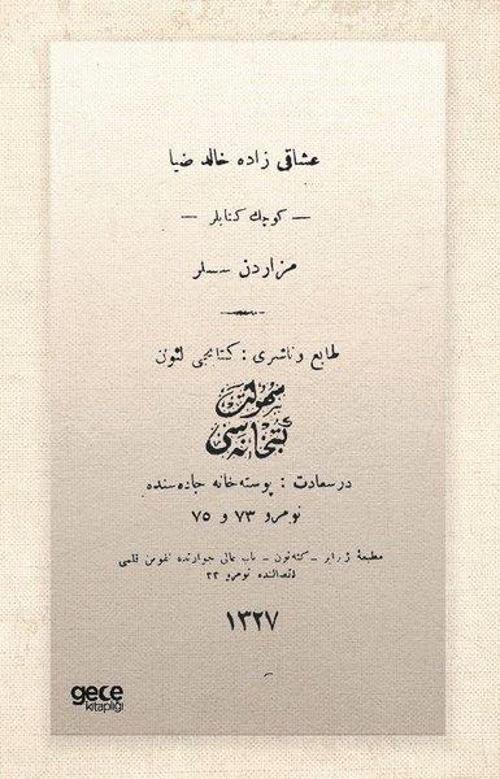 عشاقی زاده خالد ضیا
— کوچك کتابلر —
مزاردن سسلر
طابع و ناشری : کتابجی لئون
سهولت
کتبخانه سی
درسعادت : پوسته خانه جاده سنده
نومرو ۷۳ و ۷۵
مطبعهٔ - باب عالی جوارنده نفوس قلمی
اتصالنده نومرو ۲۲
۱۳۲۷
gece
kitaplığı